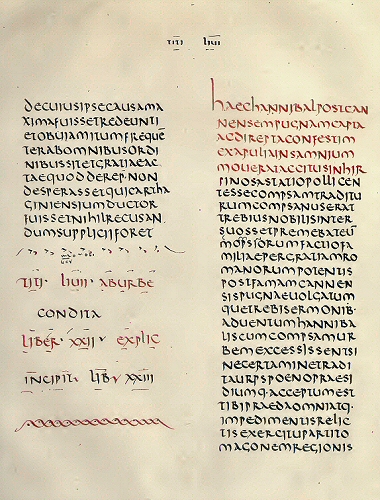 TITI LIUI
decuiusipsecausama
ximafuissetredeunti
etobuiamitumfrequē
terabomnibusordi
nibussitetgratiaeac
taequodderep·non
desperassetquicartha
giniensiumductor
fuissetnihilrecusan
dumsuppliciiforet
TITI· LIUII ABURBE
CONDITA
LIBER· XXII EXPLIC
INCIPIT· LIB XXIII
haechannibalpostcan
nensempugnamcapta
acdireptaconfestim
exapuliainsamnium
mouerataccitusinhir
pinosastatiopollicen
tesecompsamtraditu
rumcompsanuserat
trebiusnobilisinter
suossetpremebateū
mopsiorumfactiofa
miliaepergratiamro
manorumpotentis
postfamamcannen
sispugnaeuolgatum
quetrebisermonib·
aduentumhanniba
liscumcompsamur
bemexcessissentsi
necertaminetradi
taurpspoenopraesi
diumq·acceptumes
tibipraedaomniatq·
impedimentisrelic
tisexercitupartito
magonemregionis